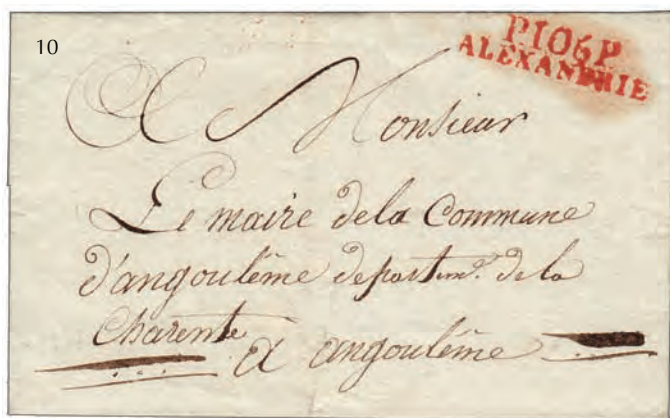 10
P106P
ALEXANDRIE
A Monsieur
Le maire de la Commune
d'angoulême departem.t de la
Charente
a angoulême